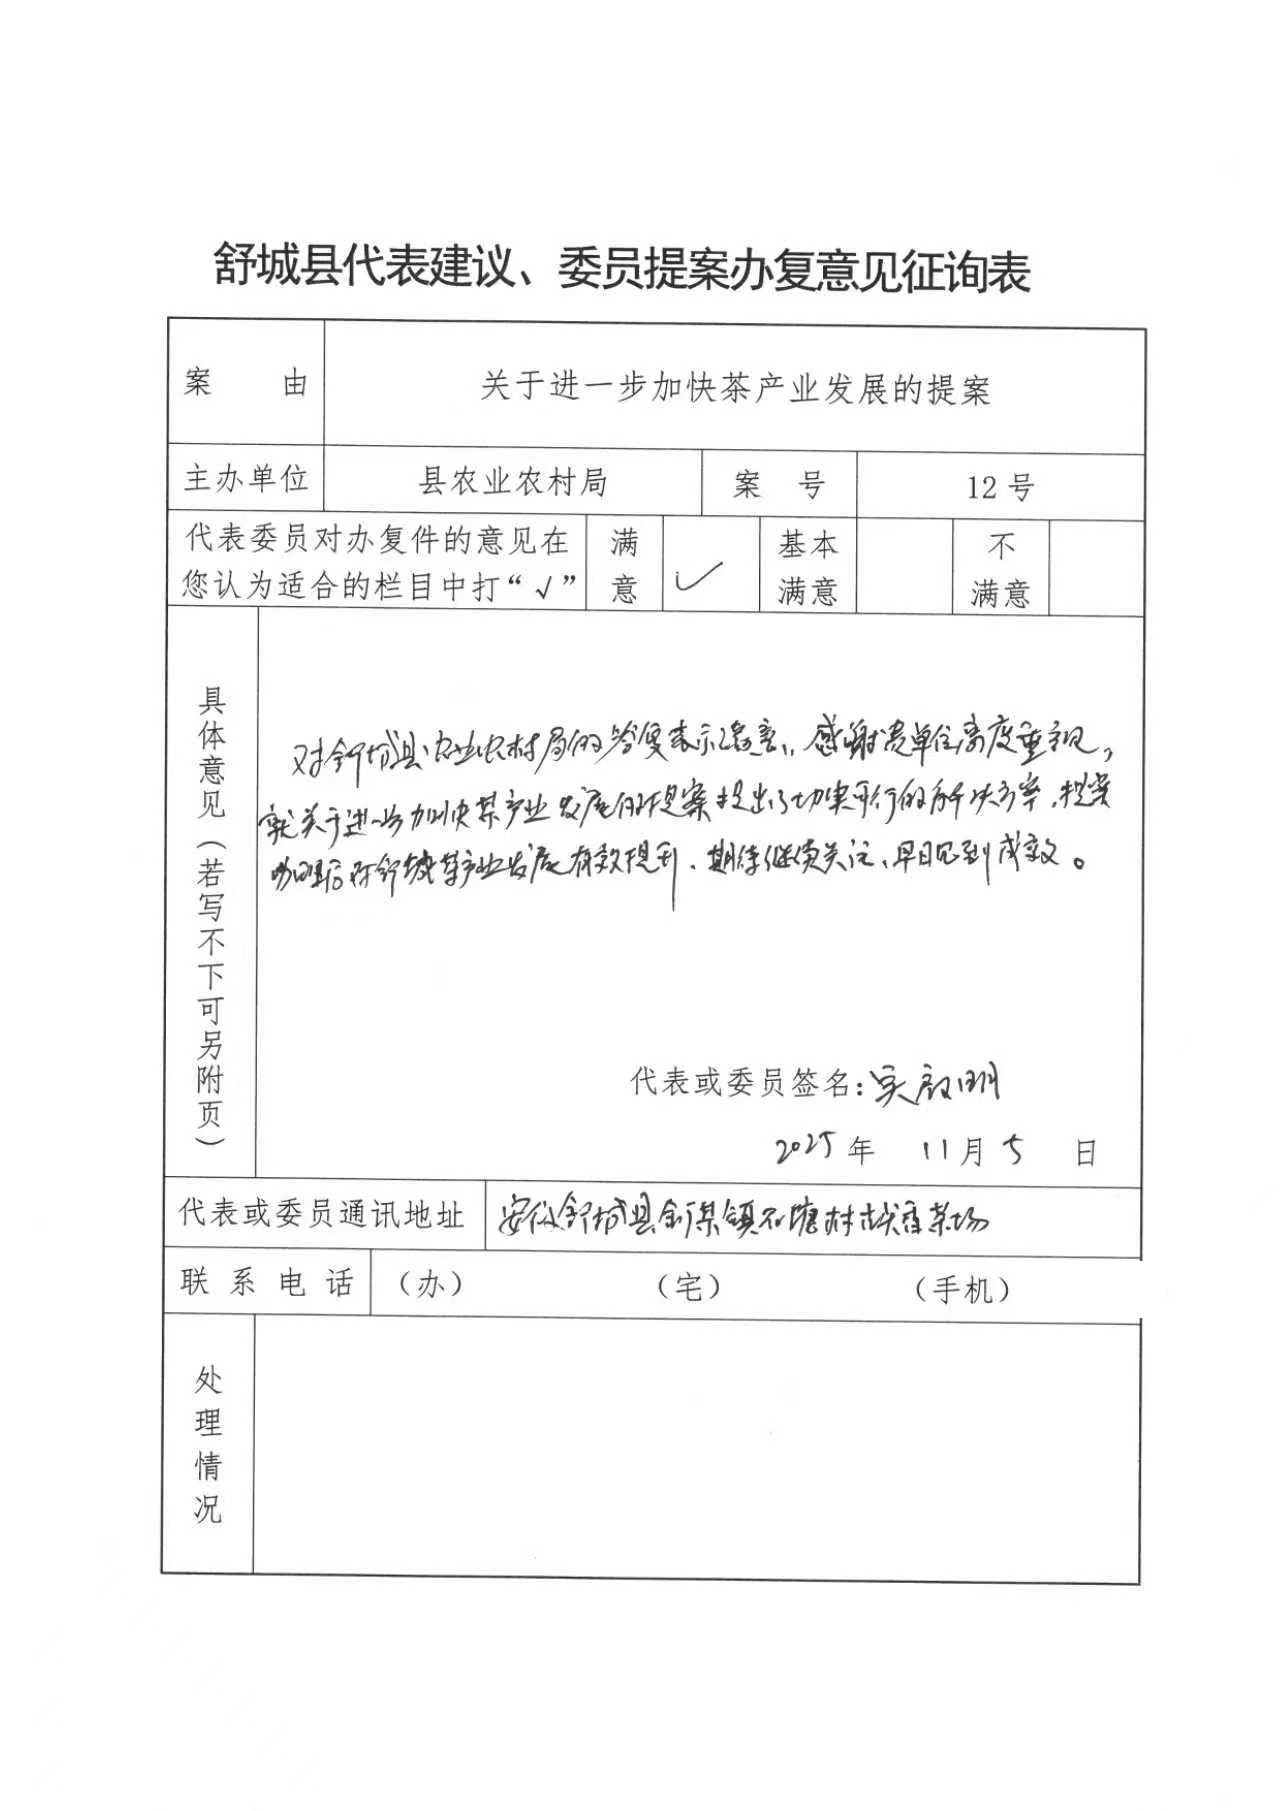 舒城县代表建议、委员提案办复意见征询表
案 由
关于进一步加快茶产业发展的提案
主办单位
县农业农村局
案 号
12 号
代表委员对办复件的意见在
您认为适合的栏目中打“√”
满意
✓
基本满意
不满意
具体意见（若写不下可另附页）
对舒城县农业农村局的答复表示满意，感谢贵单位高度重视，
就关于进一步加快茶产业发展的提案提出了切实可行的解决方案，提案
办理后对舒城茶产业发展有效提升，期待继续关注，早日见到成效。
代表或委员签名：
2025 年 11 月 5 日
代表或委员通讯地址
安徽舒城县 镇 塘村 香茶场
联 系 电 话
（办）
（宅）
（手机）
处理情况